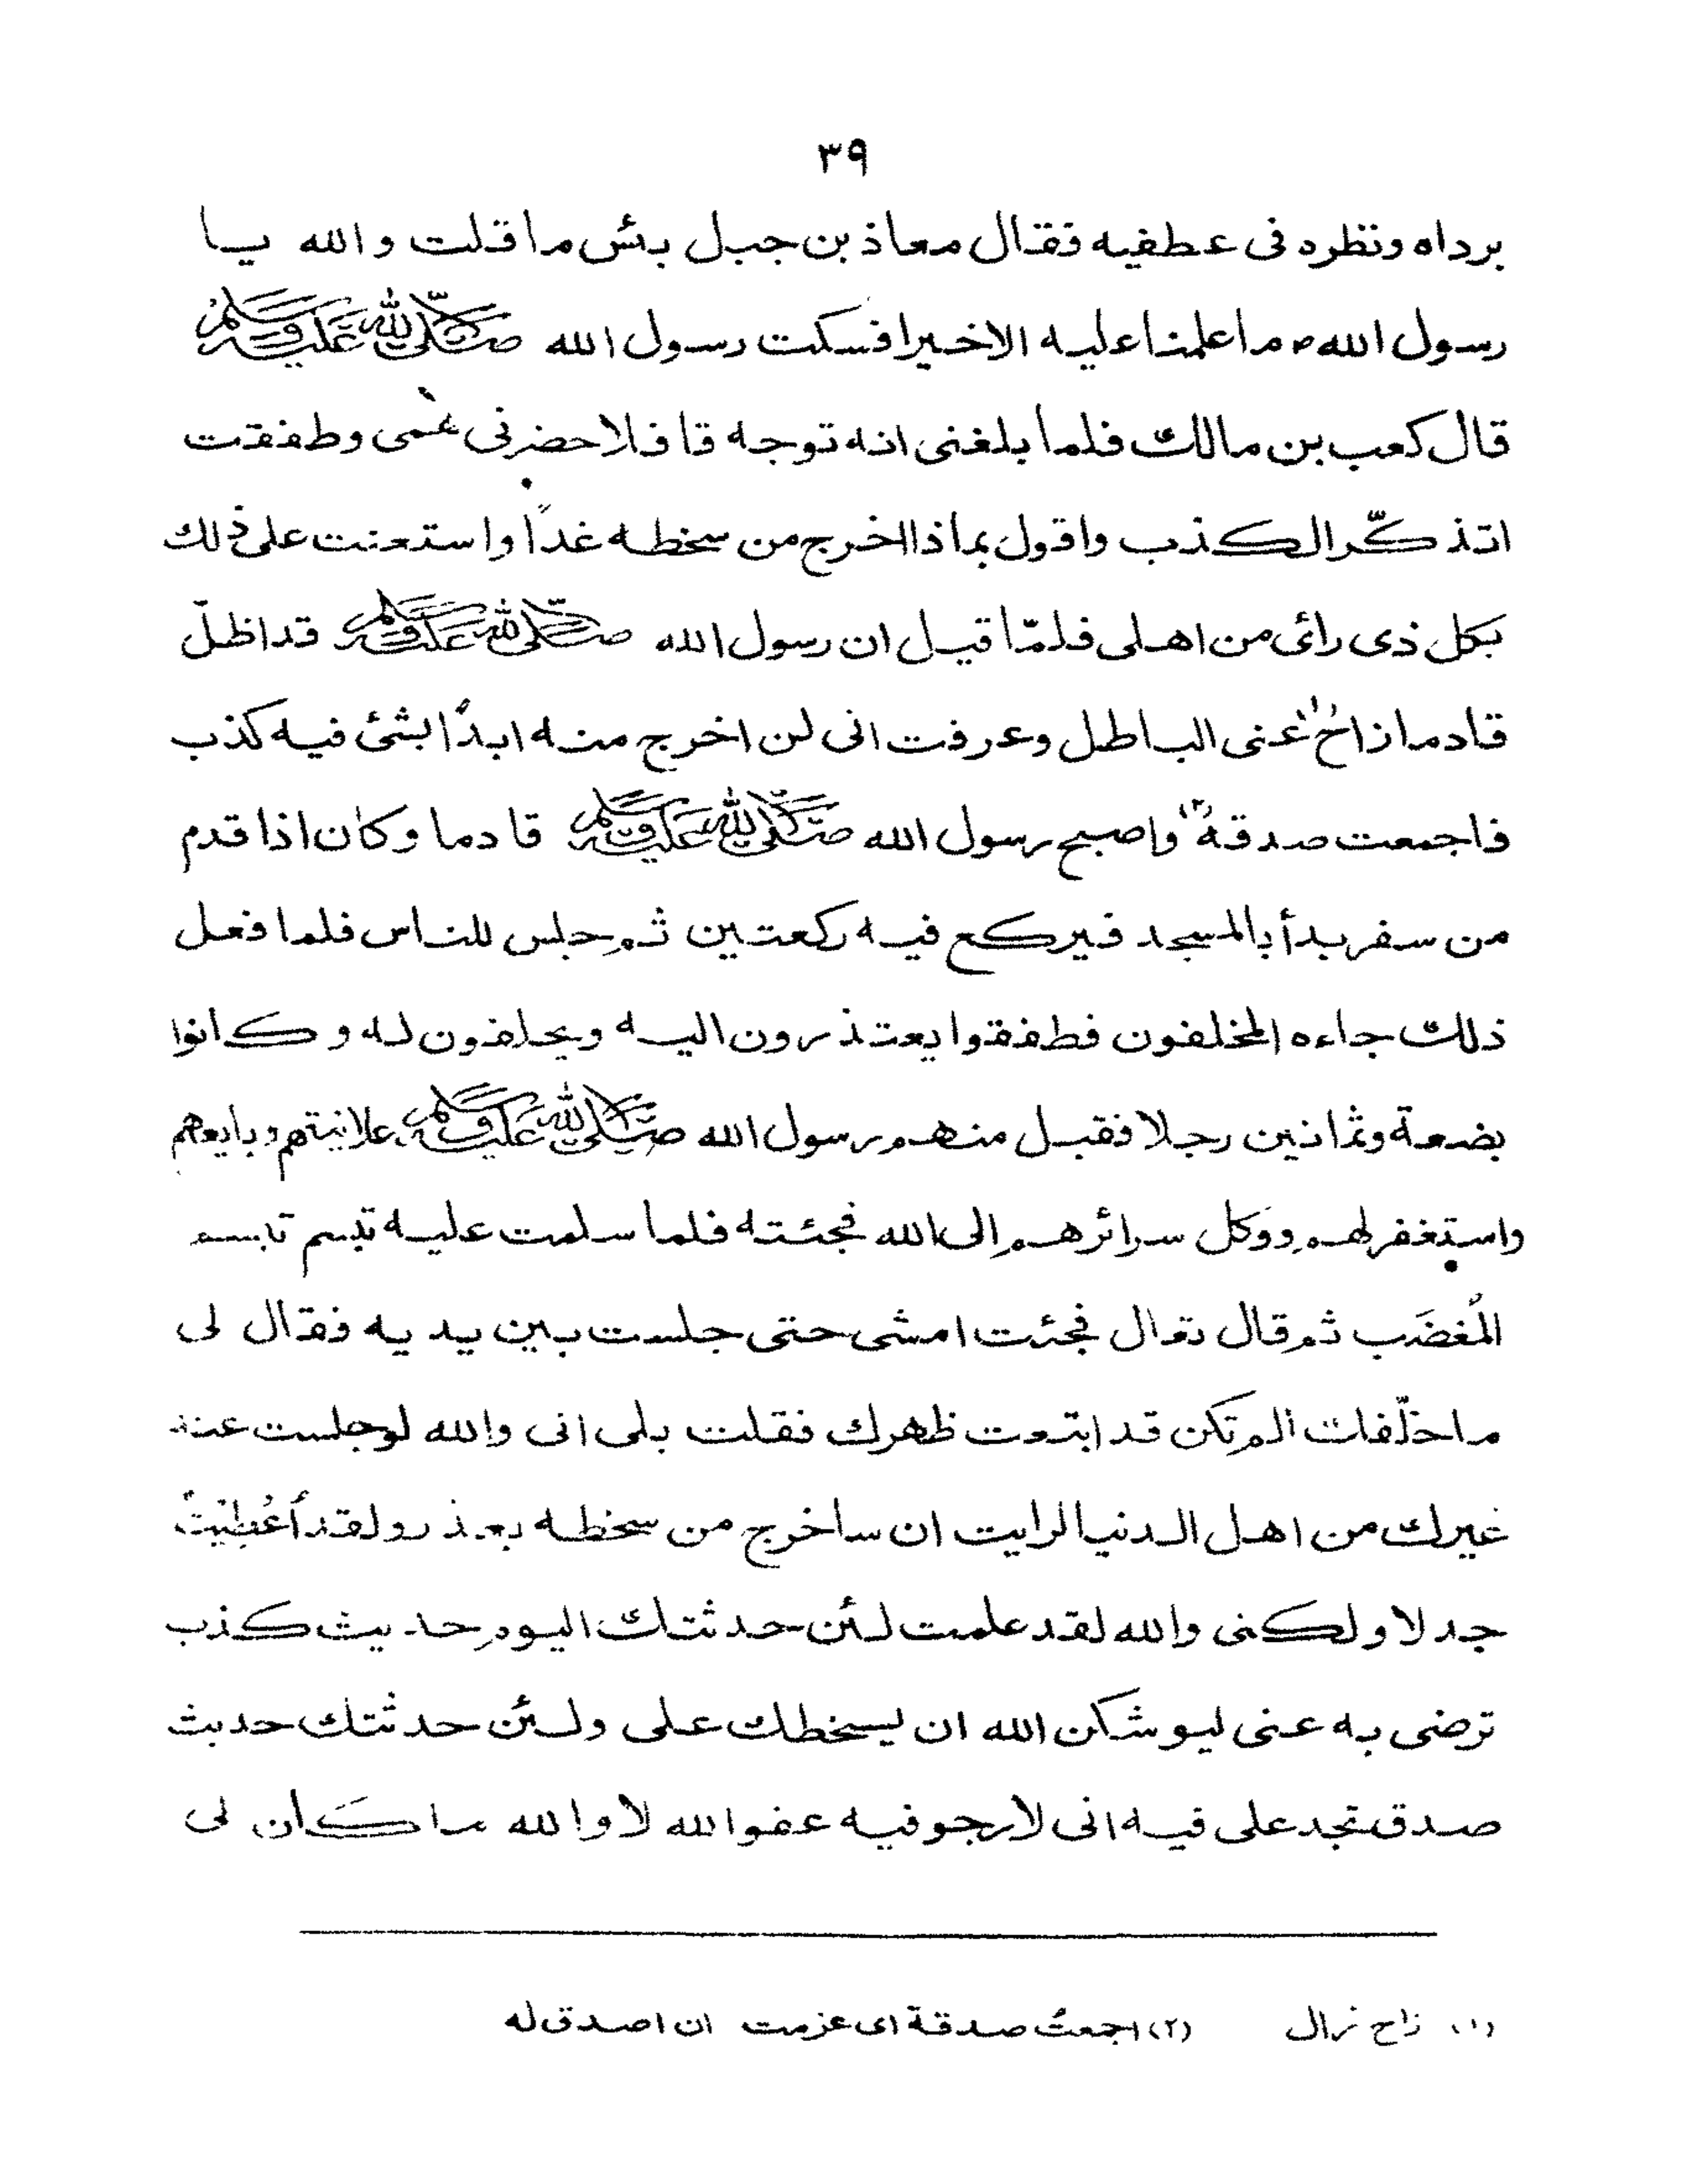 ٣٩
برداه ونظره فى عطفيه فقال معاذ بن جبل بئس ما قلت والله يا
رسول الله ص ما علمنا عليه الا خيرا فسكت رسول الله صلى الله عليه وسلم
قال كعب بن مالك فلما بلغنى انه توجه قافلا حضرنى غمى وطفقت
اتذكّر الكذب واقول بماذا اخرج من سخطه غداً واستعنت على ذلك
بكل ذى رائ من اهلى فلمّا قيل ان رسول الله صلى الله عليه وسلم قد اظلّ
قادما زاح (١) عنى الباطل وعرفت انى لن اخرج منه ابدًا بشئ فيه كذب
فاجمعت صدقهُ (٢) واصبح رسول الله صلى الله عليه وسلم قادما وكان اذا قدم
من سفر بدأ بالمسجد فيركع فيه ركعتين ثم جلس للناس فلما فعل
ذلك جاءه المخلفون فطفقوا يعتذرون اليه ويحلفون له وكانوا
بضعة وثمانين رجلا فقبل منهم رسول الله صلى الله عليه وسلم علانيتهم وبايعهم
واستغفر لهم ووكل سرائرهم الى الله فجئته فلما سلمت عليه تبسم تبسم
المُغضَب ثم قال تعال فجئت امشى حتى جلست بين يديه فقال لى
ما خلّفك الم تكن قد ابتعت ظهرك فقلت بلى انى والله لو جلست عند
غيرك من اهل الدنيا لرايت ان ساخرج من سخطه بعذر ولقد أُعْطِيْتُ
جدلا ولكنى والله لقد علمت لئن حدثتك اليوم حديث كذب
ترضى به عنى ليوشكن الله ان يسخطك على ولئن حدثتك حديث
صدق تجد على فيه انى لارجو فيه عفو الله لا والله ما كان لى
(١) زاح زال (٢) اجمعتُ صدقة اى عزمت ان اصدق له